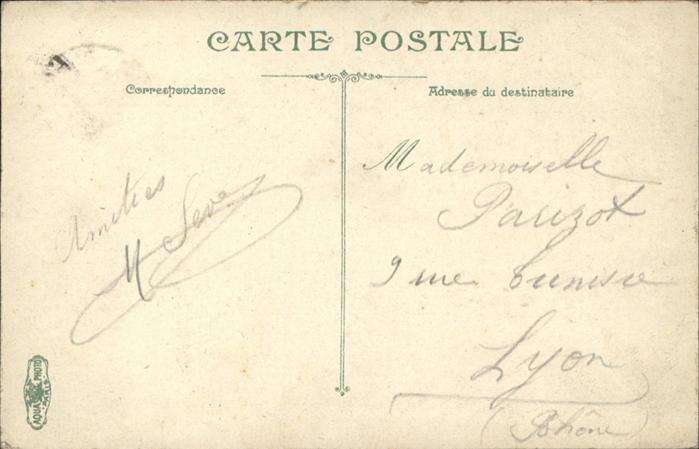 CARTE POSTALE
Correspondance
Adresse du destinataire
Amitiés
M Seve
Mademoiselle
Parizot
9 rue
Lyon
(Rhône)
AQUA PHOTO
PARIS